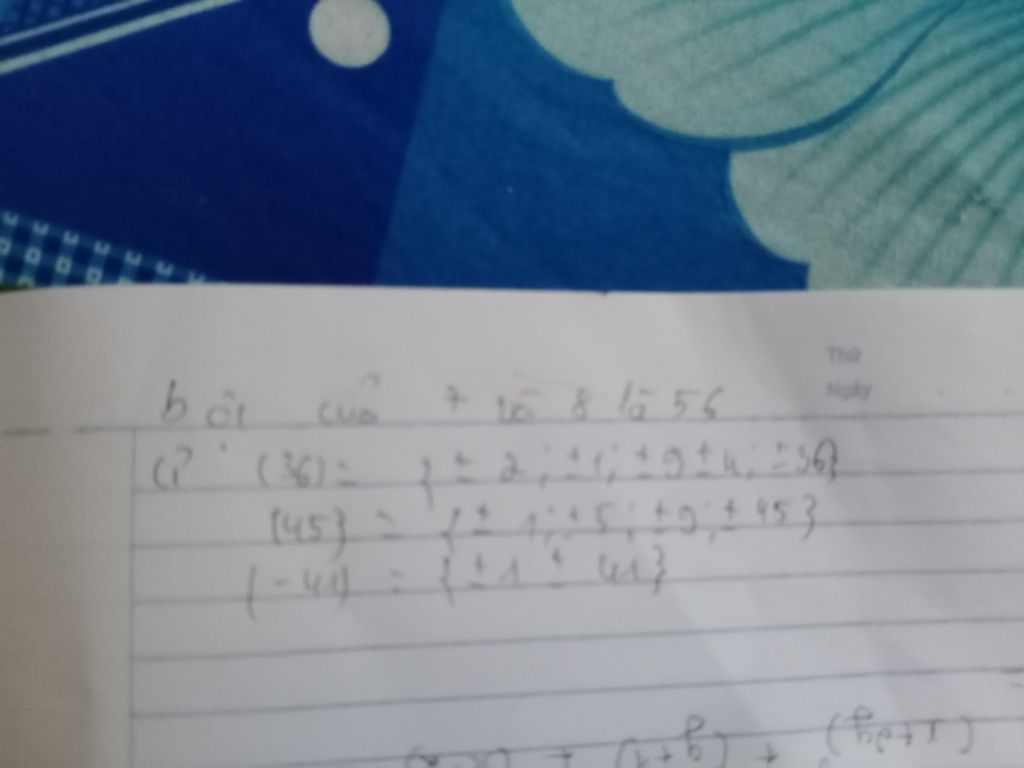 Thứ
Ngày
bội của 7 và 8 là 56
Ư (36) = { ± 2 ; ±1; ±9 ±4; ±36}
(45} = { ± 1; ±5; ±9; ± 45}
(-41) = { ±1 ± 41}